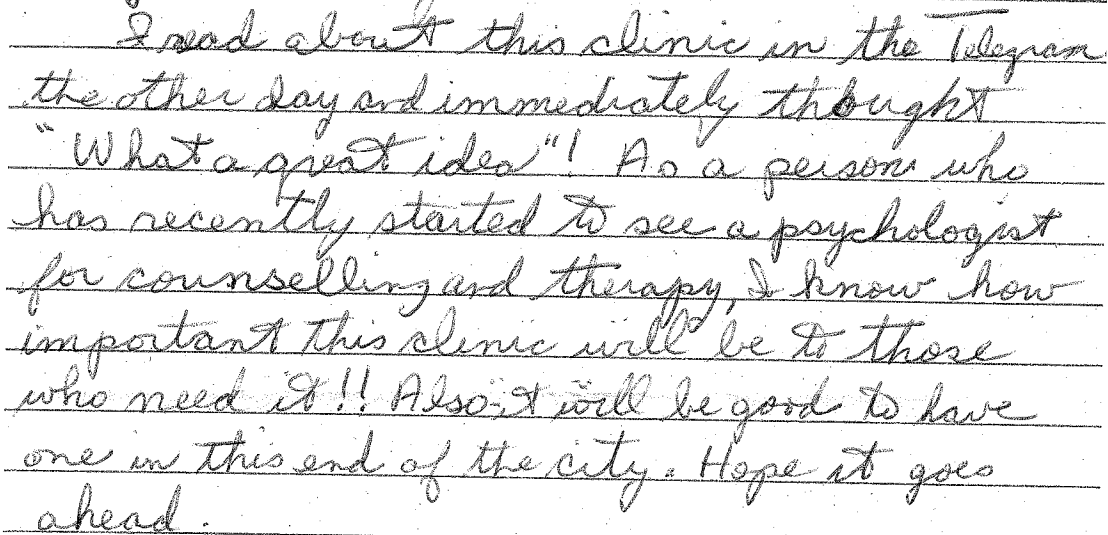 I read about this clinic in the Telegram
the other day and immediately thought
"What a great idea"! As a person who
has recently started to see a psychologist
for counselling and therapy, I know how
important this clinic will be to those
who need it!! Also, it will be good to have
one in this end of the city. Hope it goes
ahead.